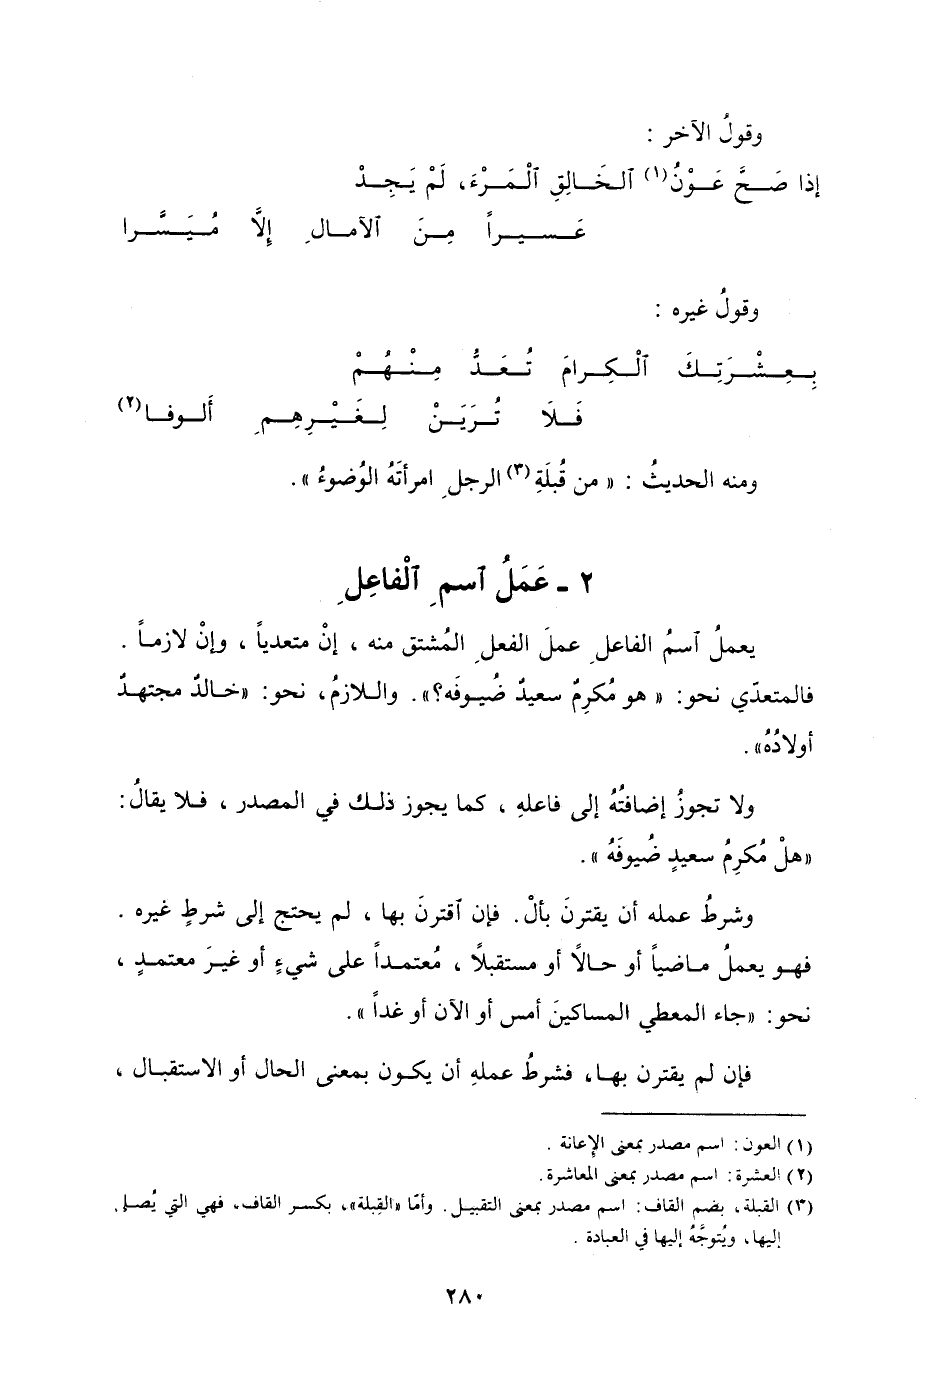 وقولُ الآخر :
إذا صَحَّ عَوْنُ(١) ٱلخَالِقِ ٱلْمَرْءَ، لَمْ يَجِدْ
عَسيراً مِنَ ٱلآمالِ إلَّا مُيَسَّرا
وقولُ غيره :
بِعِشْرَتِكَ ٱلْكِرامَ تُعَدُّ مِنْهُمْ
فَلَا تُرَيَنْ لِغَيْرِهِمِ أَلوفا(٢)
ومنه الحديثُ : « من قُبلَةِ(٣) الرجلِ امرأتَهُ الوُضوءُ ».
٢ ـ عَمَلُ ٱسمِ ٱلْفاعِلِ
يعملُ ٱسمُ الفاعلِ عملَ الفعلِ المُشتق منه ، إنْ متعدياً ، وإنْ لازماً .
فالمتعدّي نحو: « هو مُكرِمٌ سعيدٌ ضُيوفَه؟». واللازمُ، نحو: «خالدٌ مجتهدٌ
أولادُهُ» .
ولا تجوزُ إضافتُهُ إلى فاعلهِ ، كما يجوز ذلك في المصدر ، فلا يقالُ:
«هلْ مُكرِمُ سعيدٍ ضُيوفَهُ » .
وشرطُ عمله أن يقترنَ بألْ. فإن ٱقترنَ بها ، لم يحتج إلى شرطٍ غيره .
فهو يعملُ ماضياً أو حالًا أو مستقبلًا ، مُعتمداً على شيءٍ أو غيرَ معتمدٍ ،
نحو: «جاء المعطي المساكينَ أمس أو الآن أو غداً ».
فإن لم يقترن بها، فشرطُ عملهِ أن يكون بمعنى الحال أو الاستقبال ،
(١) العون : اسم مصدر بمعنى الإعانة .
(٢) العشرة : اسم مصدر بمعنى المعاشرة.
(٣) القبلة، بضم القاف: اسم مصدر بمعنى التقبيل. وأمّا «القِبلة»، بكسر القاف، فهي التي يُصلى
إليها، ويُتوجَّهُ إليها في العبادة .
٢٨٠